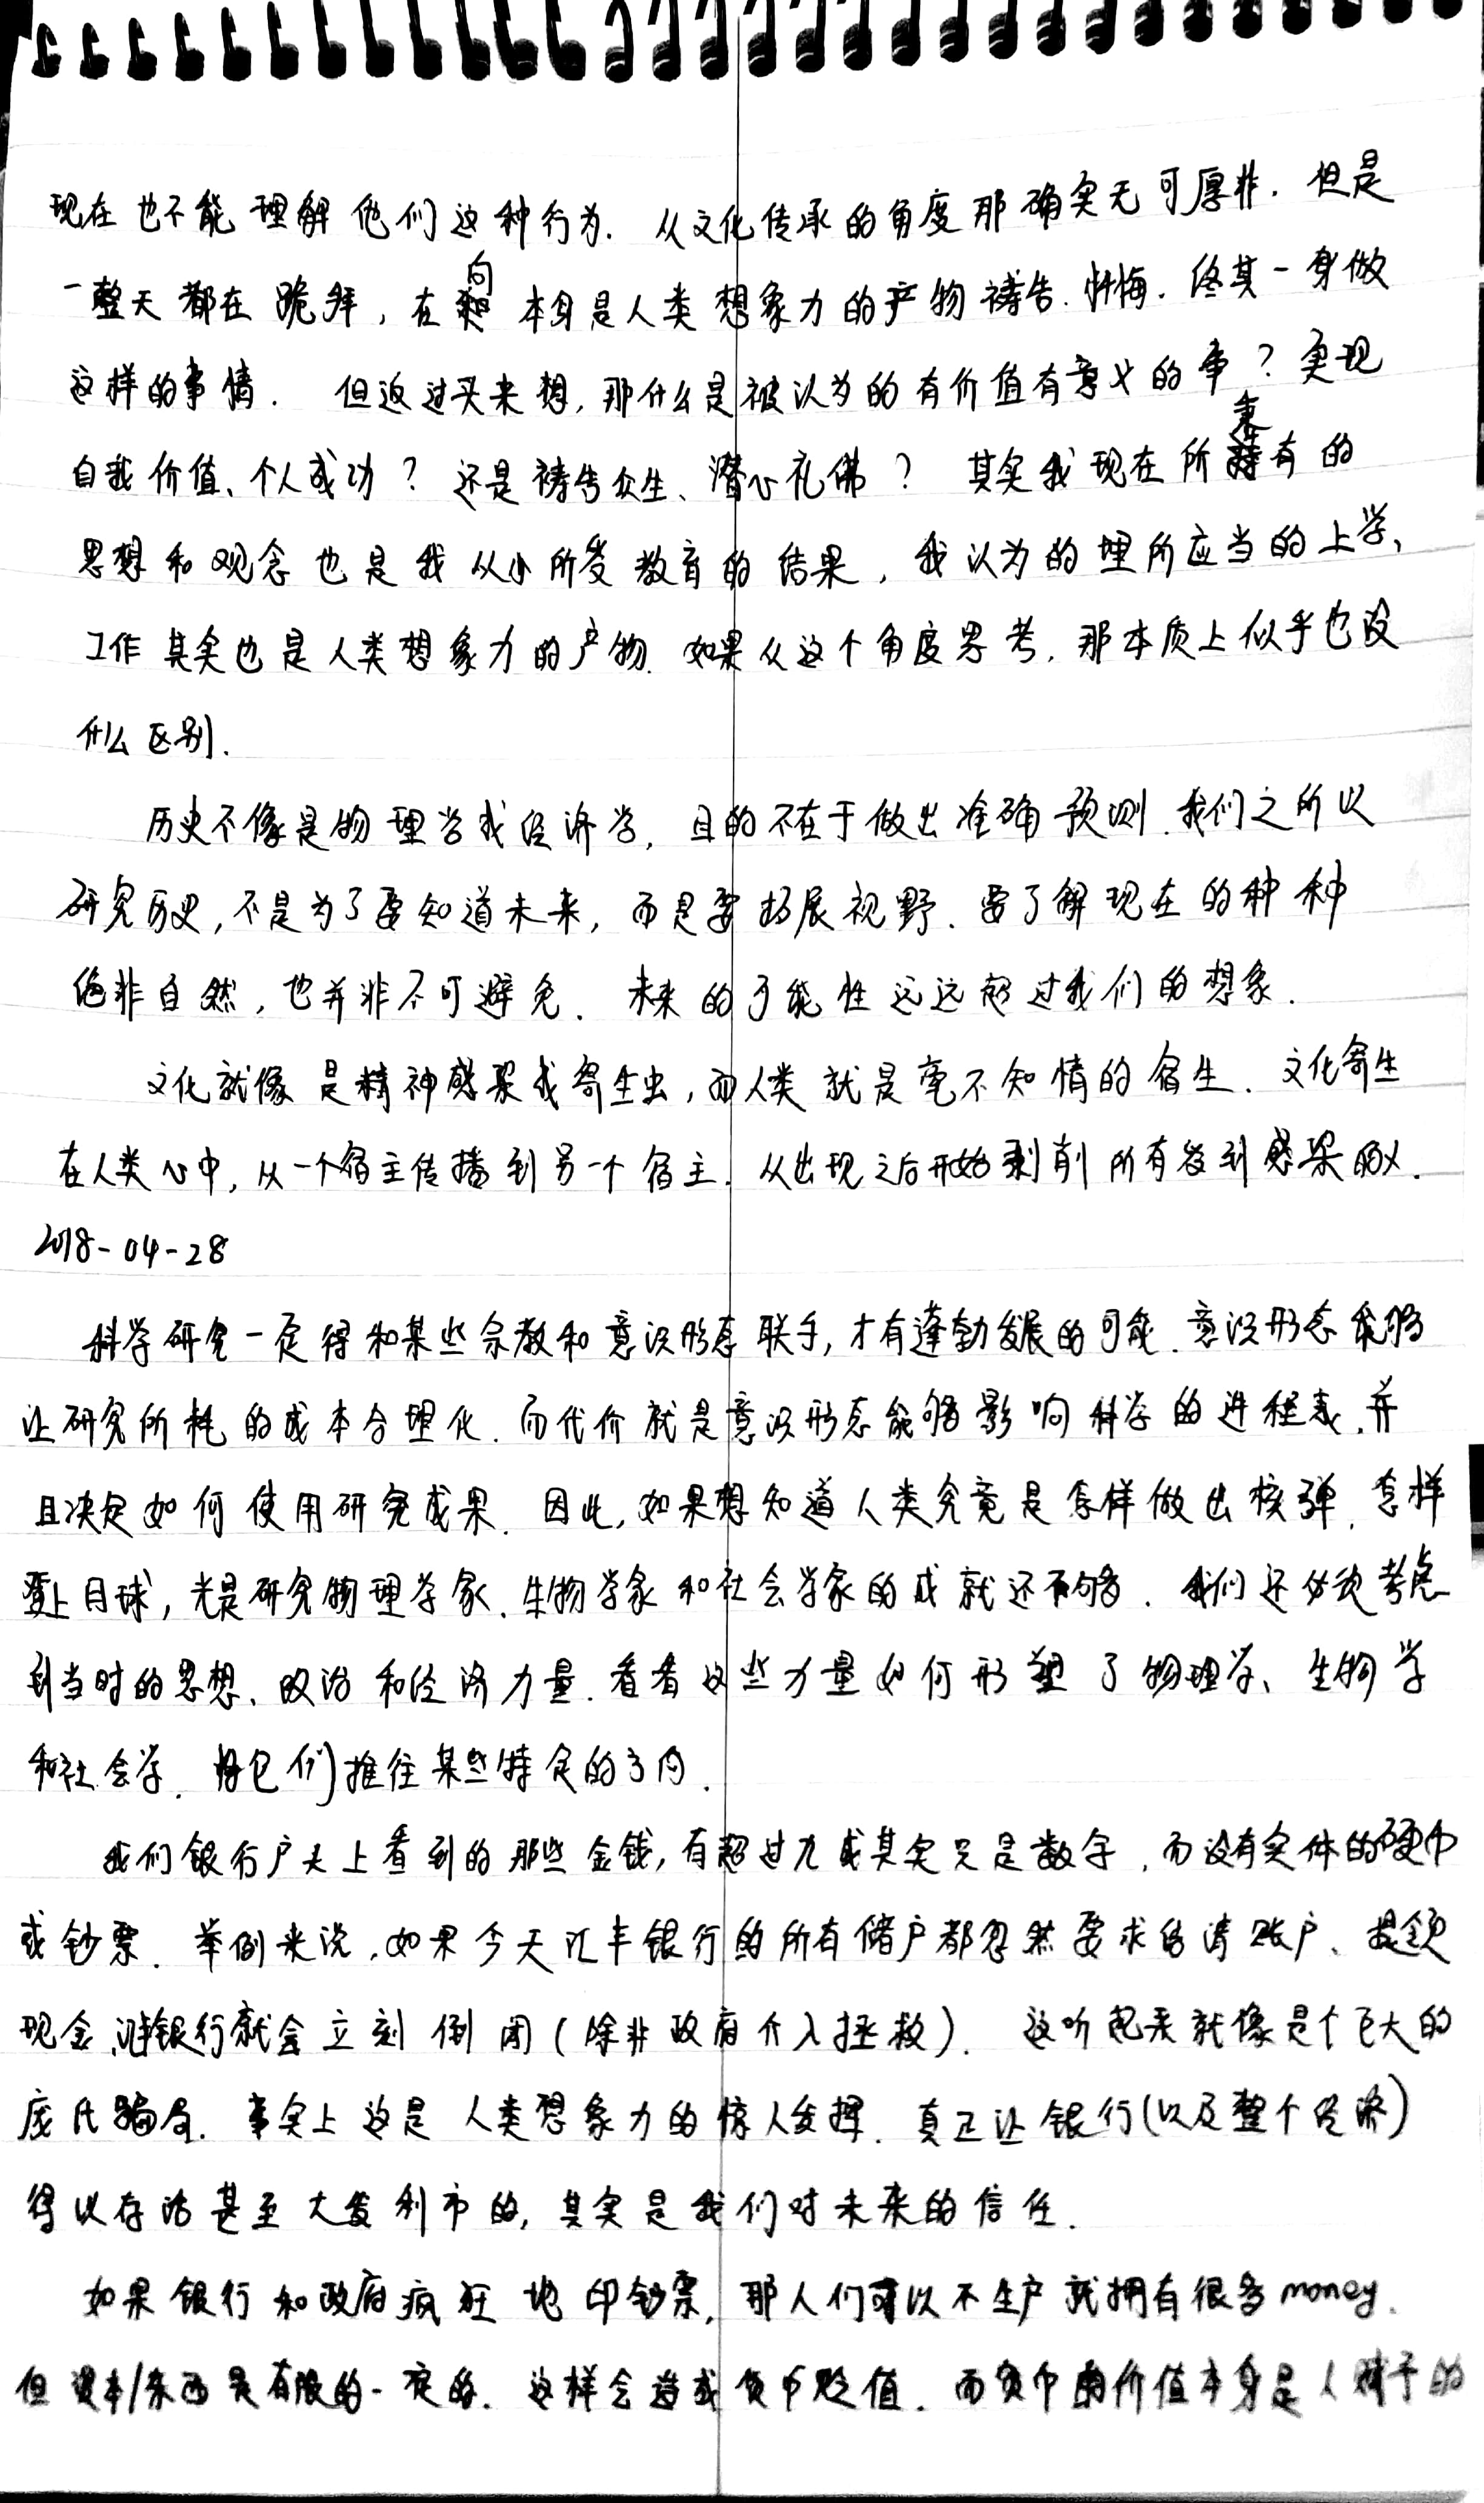 现在也不能理解他们这种行为. 从文化传承的角度那确实无可厚非. 但是
一整天都在跪拜, 在向本身是人类想象力的产物祷告.忏悔. 终其一身做
这样的事情. 但返过头来想, 那什么是被认为的有价值有意义的事? 实现
自我价值、个人成功? 还是祷告众生、潜心礼佛? 其实我现在所秉有的
思想和观念也是我从小所受教育的结果, 我认为的理所应当的上学、
工作其实也是人类想象力的产物. 如果从这个角度思考, 那本质上似乎也没
什么区别.
历史不像是物理学或经济学, 目的不在于做出准确预测. 我们之所以
研究历史, 不是为了要知道未来, 而是要拓展视野. 要了解现在的种种
绝非自然, 也并非不可避免. 未来的可能性远远超过我们的想象.
文化就像是精神感染或寄生虫, 而人类就是毫不知情的宿生. 文化寄生
在人类心中, 从一个宿主传播到另一个宿主. 从出现之后开始剥削所有受到感染的人.
2018-04-28
科学研究一定得和某些宗教和意识形态联手, 才有蓬勃发展的可能. 意识形态能够
让研究所耗的成本合理化. 而代价就是意识形态能够影响科学的进程表. 并
且决定如何使用研究成果. 因此, 如果想知道人类究竟是怎样做出核弹. 怎样
登上月球, 光是研究物理学家、生物学家和社会学家的成就还不够. 我们还必须考虑
到当时的思想、政治和经济力量. 看看这些力量如何形塑了物理学、生物学
和社会学. 将它们推往某些特定的方向.
我们银行户头上看到的那些金钱, 有超过九成其实只是数字, 而没有实体的硬币
或钞票. 举例来说, 如果今天汇丰银行的所有储户都忽然要求结清账户、提领
现金, 银行就会立刻倒闭(除非政府介入拯救). 这听起来就像是个巨大的
庞氏骗局. 事实上这是人类想象力的惊人发挥. 真正让银行(以及整个经济)
得以存活甚至大发利市的, 其实是我们对未来的信任.
如果银行和政府疯狂地印钞票, 那人们可以不生产就拥有很多money.
但资本/东西是有限的一定的. 这样会造成货币贬值. 而货币的价值本身是人赋予的